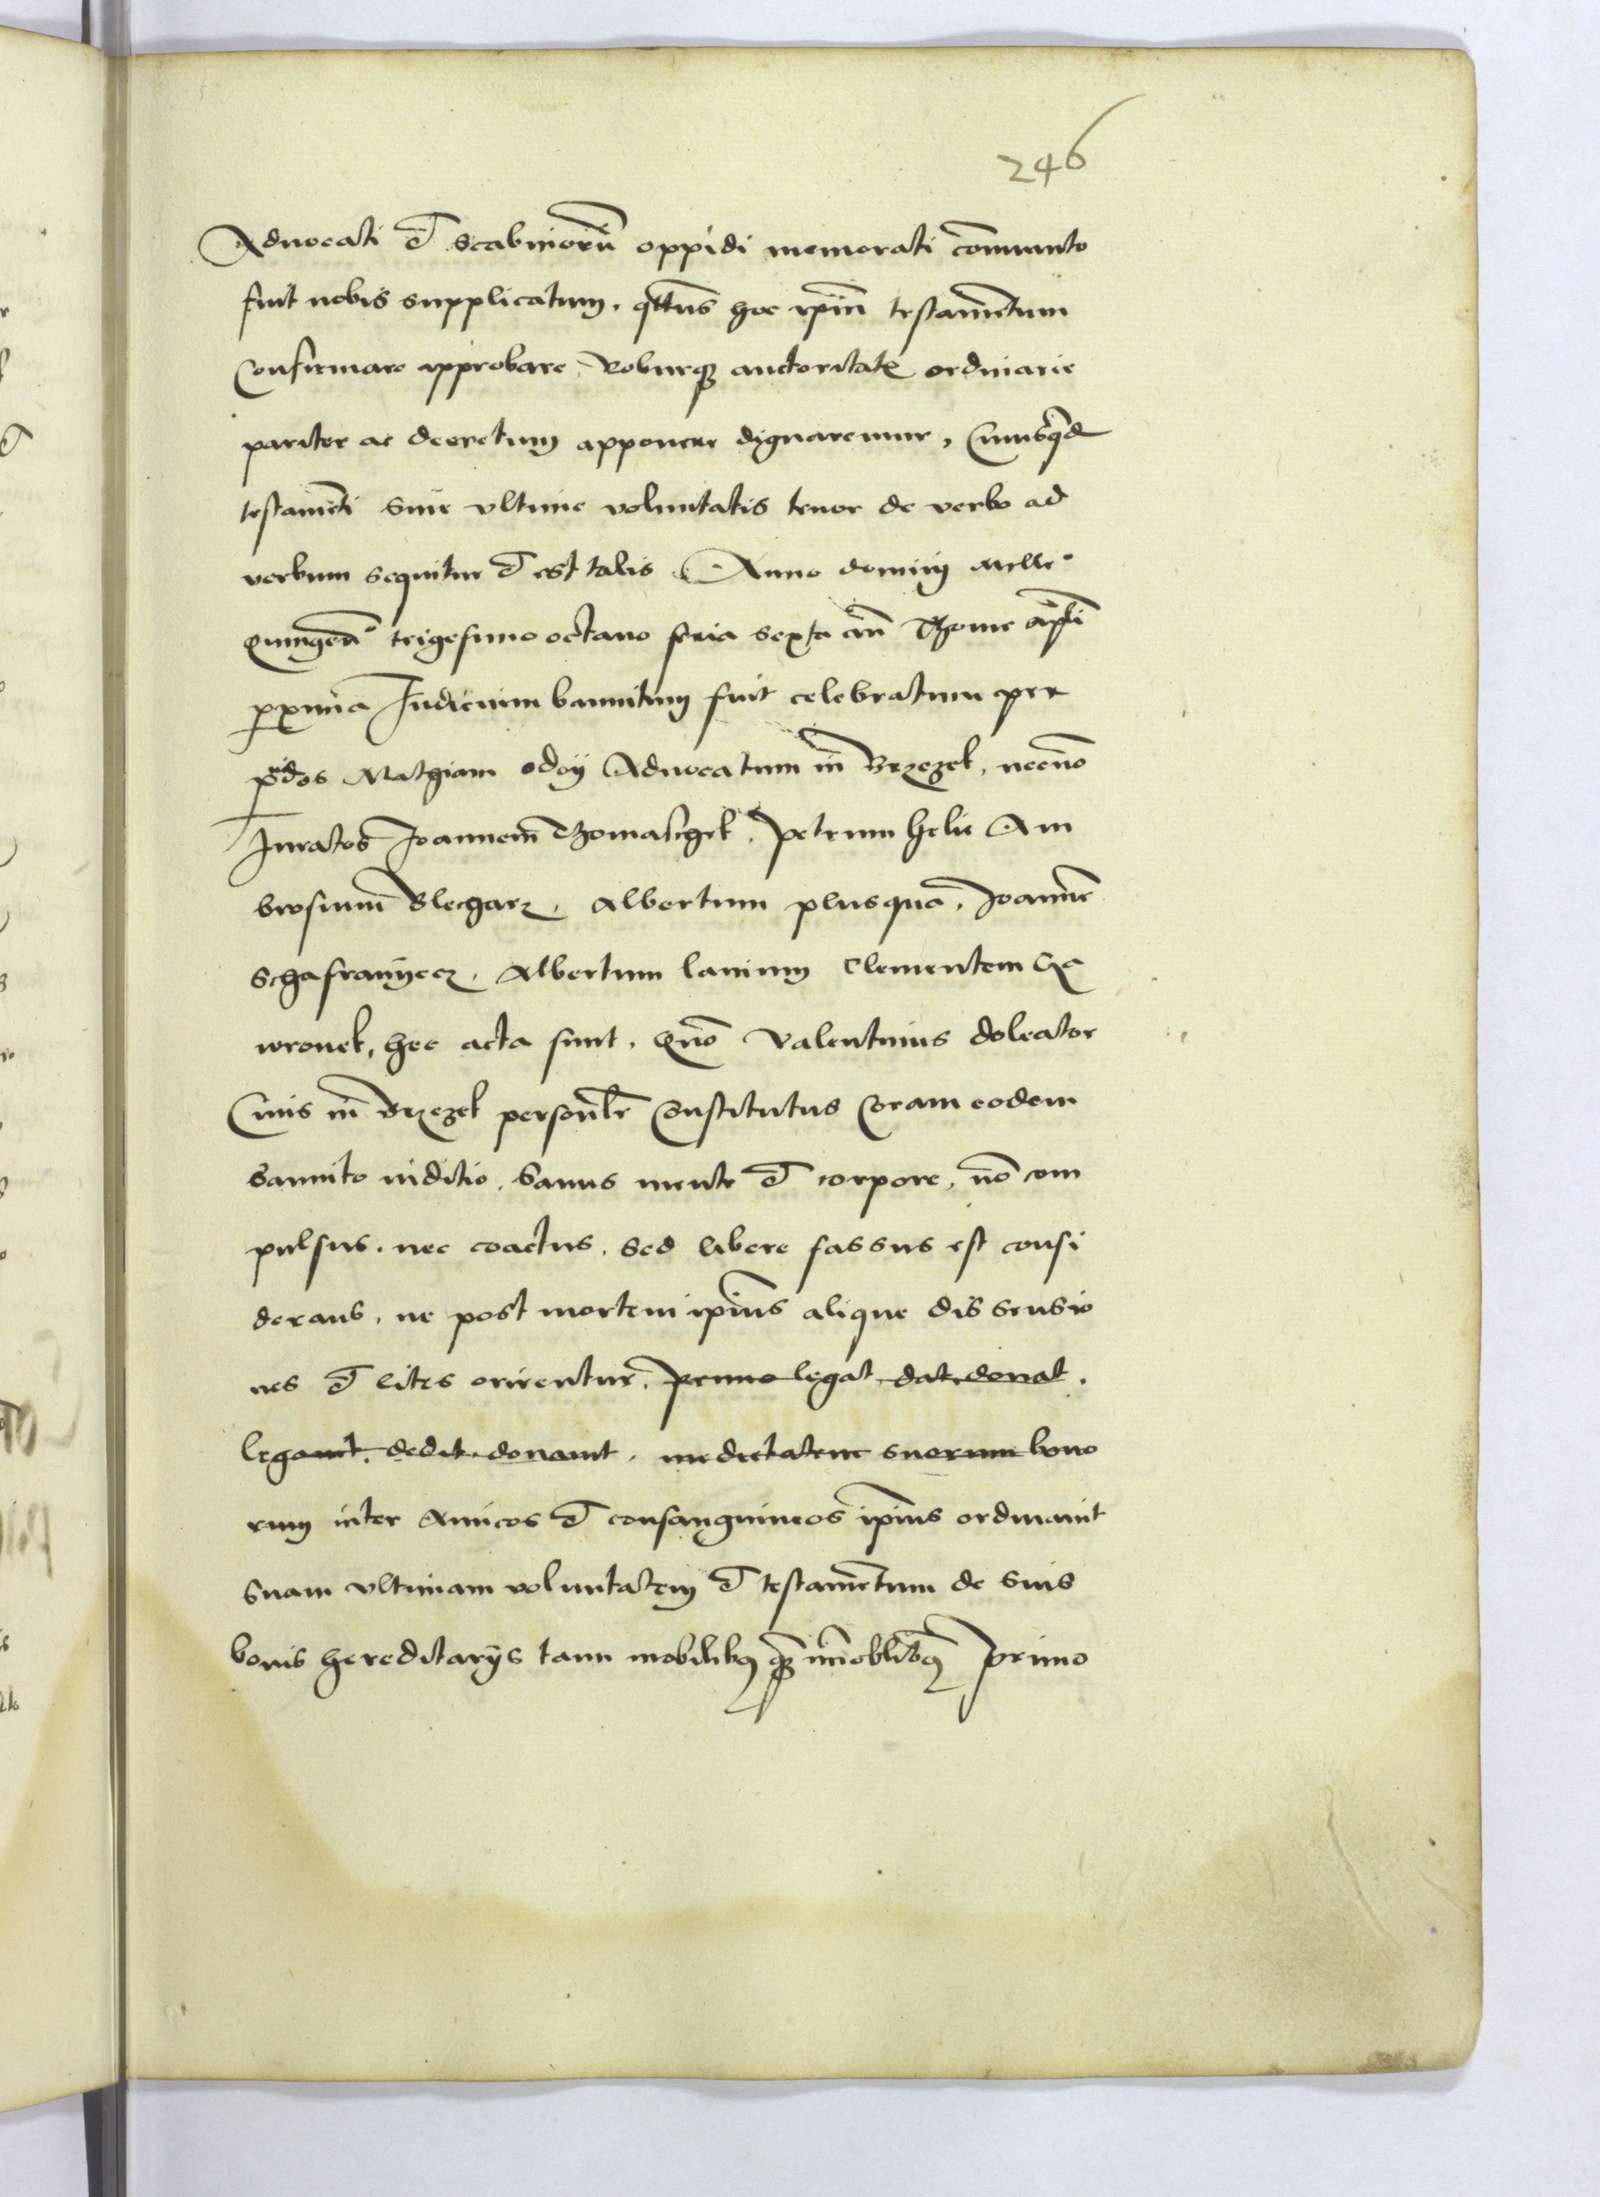 246
Aduocati et scabinorū oppidi memorati comunito
fuit nobis supplicatum, qttus hoc ipm̄ testamentum
Confirmare approbare, Roburq3 auctoritatis ordinarie
pariter ac decretum apponere dignaremur, Cuiusqd
testamēti siue vltime voluntatis tenor de verbo ad
verbum sequitur et est talis Anno dominj Mille°
Quingen° trigesimo octauo feria sexta an̄ Thome apl̄i
proxima Judicium bannitum fuit celebratum per
prdos Mathiam odoy Aduocatum in Brzezek, necnō
Juratos Joannem Thomaschek, Petrum helie Am
brosium Blecharz, Albertum plusquā, Joannē
Schafraniyecz, Albertum lanium Clementem Ga
wronek, hec acta sunt, Quō Valentinus doleator
Ciuis in Brzezek personl̄r Constitutus Coram eodem
bannito iuditio, Sanus mente et corpore, nō com
pulsus, nec coactus, sed libere fassus est consi
derans, ne post mortem ipius alique dissensio
nes et lites orirentur, Primo legat dat donat,
legauit, dedit donauit, medietatem suorum bono
rum inter Amicos et consanguineos ipius ordinauit
suam vltimam voluntatem et testamentum de suis
bonis hereditarijs tam mobilibus quam immobilibus Primo